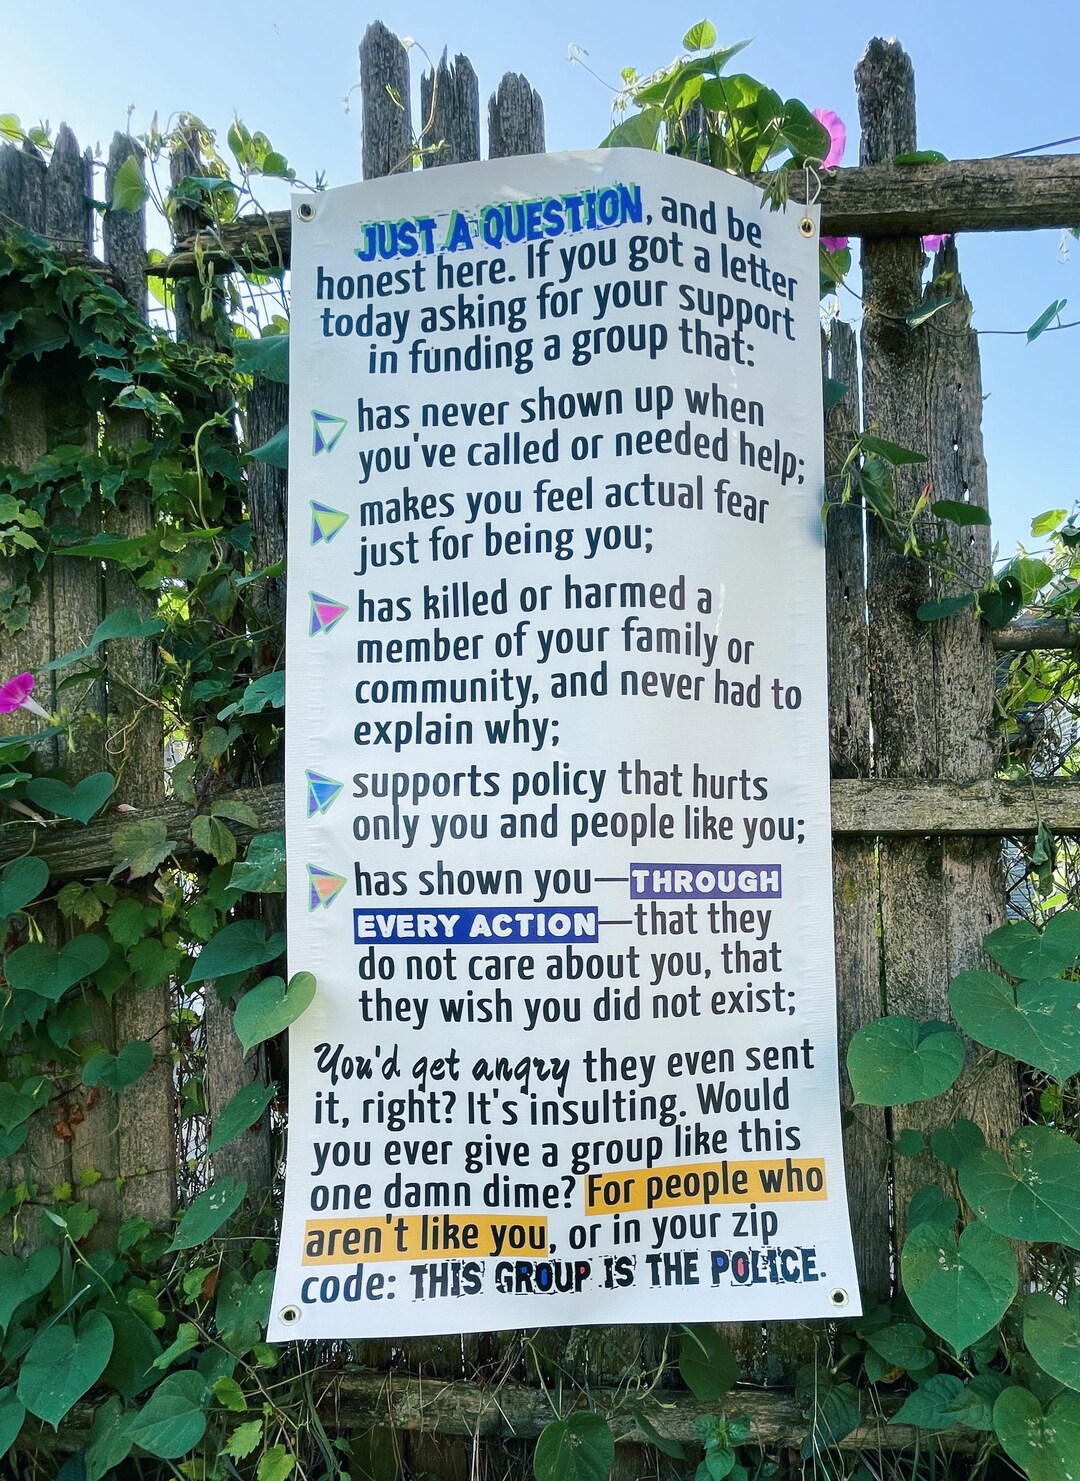 JUST A QUESTION, and be
honest here. If you got a letter
today asking for your support
in funding a group that:
has never shown up when
you've called or needed help;
makes you feel actual fear
just for being you;
has killed or harmed a
member of your family or
community, and never had to
explain why;
supports policy that hurts
only you and people like you;
has shown you—THROUGH
EVERY ACTION—that they
do not care about you, that
they wish you did not exist;
You'd get angry they even sent
it, right? It's insulting. Would
you ever give a group like this
one damn dime? For people who
aren't like you, or in your zip
code: THIS GROUP IS THE POLICE.